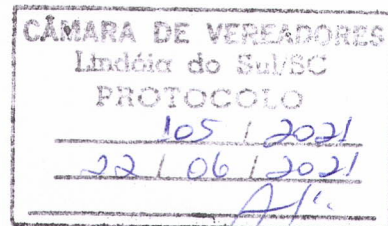 CÂMARA DE VEREADORES
Lindóia do Sul/SC
PROTOCOLO
105 / 2021
22 / 06 / 2021